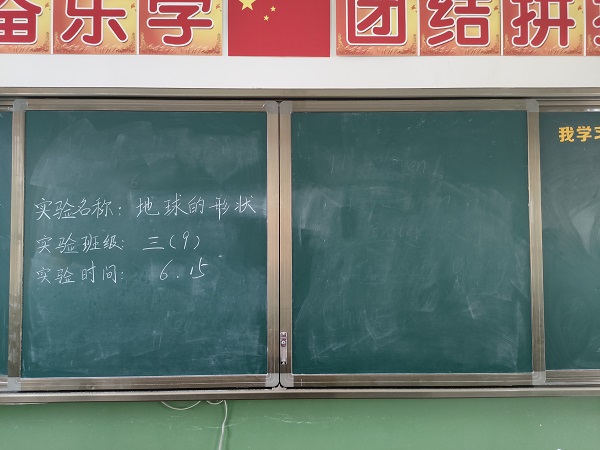 奋乐学
团结拼
我学习
实验名称：地球的形状
实验班级：三(9)
实验时间：6.15